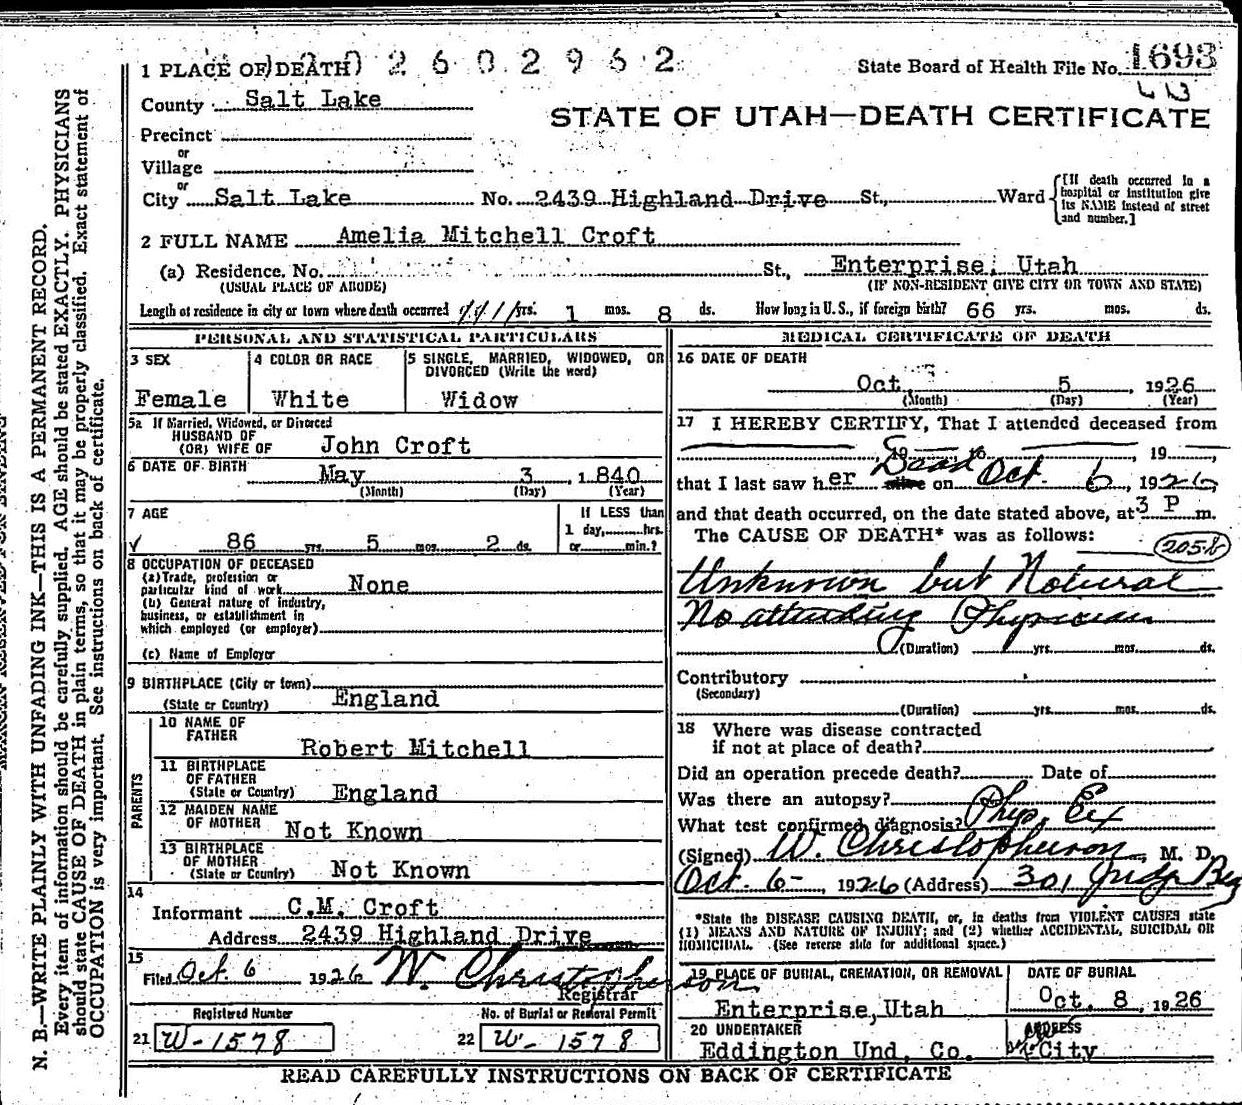 1 PLACE OF DEATH 2602962
State Board of Health File No. 1693
County Salt Lake
STATE OF UTAH—DEATH CERTIFICATE
Precinct
or
Village
or
City Salt Lake No. 2439 Highland Drive St., Ward
[If death occurred in a hospital or institution give its NAME instead of street and number.]
2 FULL NAME Amelia Mitchell Croft
(a) Residence, No. St., Enterprise, Utah
(USUAL PLACE OF ABODE) (IF NON-RESIDENT GIVE CITY OR TOWN AND STATE)
Length of residence in city or town where death occurred yrs. 1 mos. 8 ds. How long in U.S., if foreign birth? 66 yrs. mos. ds.
PERSONAL AND STATISTICAL PARTICULARS
3 SEX
Female
4 COLOR OR RACE
White
5 SINGLE, MARRIED, WIDOWED, OR
DIVORCED (Write the word)
Widow
5a If Married, Widowed, or Divorced
HUSBAND OF
(OR) WIFE OF John Croft
6 DATE OF BIRTH May 3, 1840
(Month) (Day) (Year)
7 AGE
86 yrs. 5 mos. 2 ds.
If LESS than
1 day, hrs.
or min.?
8 OCCUPATION OF DECEASED
(a) Trade, profession or
particular kind of work None
(b) General nature of industry,
business, or establishment in
which employed (or employer)
(c) Name of Employer
9 BIRTHPLACE (City or town)
(State or Country) England
PARENTS
10 NAME OF
FATHER Robert Mitchell
11 BIRTHPLACE
OF FATHER
(State or Country) England
12 MAIDEN NAME
OF MOTHER Not Known
13 BIRTHPLACE
OF MOTHER
(State or Country) Not Known
14
Informant C.M. Croft
Address 2439 Highland Drive
15
Filed Oct. 6 1926 W. Christopherson
Registrar
Registered Number
21 W-1578
No. of Burial or Removal Permit
22 W-1578
MEDICAL CERTIFICATE OF DEATH
16 DATE OF DEATH
Oct 5, 1926
(Month) (Day) (Year)
17 I HEREBY CERTIFY, That I attended deceased from
, 19 , to , 19 ,
that I last saw her alive Dead on Oct. 6, 1926,
and that death occurred, on the date stated above, at 3 P m.
The CAUSE OF DEATH* was as follows:
205B
Unknown but Natural
No attending Physician
(Duration) yrs. mos. ds.
Contributory
(Secondary)
(Duration) yrs. mos. ds.
18 Where was disease contracted
if not at place of death?
Did an operation precede death? Date of
Was there an autopsy?
What test confirmed diagnosis? Phys. Ex
(Signed) W. Christopherson, M. D.
Oct. 6-, 1926 (Address) 301
*State the DISEASE CAUSING DEATH, or, in deaths from VIOLENT CAUSES state
(1) MEANS AND NATURE OF INJURY; and (2) whether ACCIDENTAL, SUICIDAL OR
HOMICIDAL. (See reverse side for additional space.)
19 PLACE OF BURIAL, CREMATION, OR REMOVAL
Enterprise, Utah
DATE OF BURIAL
Oct. 8, 1926
20 UNDERTAKER
Eddington Und. Co.
ADDRESS
City
READ CAREFULLY INSTRUCTIONS ON BACK OF CERTIFICATE
N. B.—WRITE PLAINLY WITH UNFADING INK—THIS IS A PERMANENT RECORD.
Every item of information should be carefully supplied. AGE should be stated EXACTLY. PHYSICIANS
should state CAUSE OF DEATH in plain terms, so that it may be properly classified. Exact statement of
OCCUPATION is very important. See instructions on back of certificate.